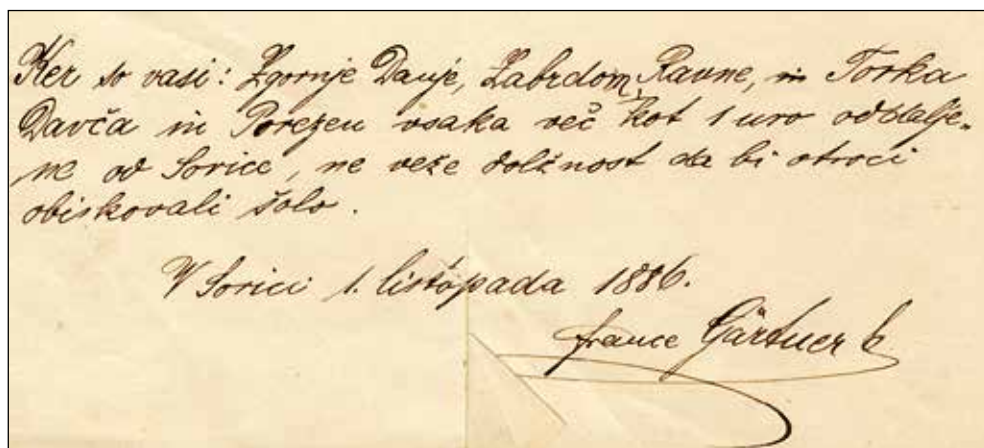 Ker so vasi: Zgornje Danje, Zabrdom, Ravne, in Torka
Davča in Porezen vsaka več kot 1 uro oddalje-
ne od Sorice, ne veže dolžnost da bi otroci
obiskovali šolo.
V Sorici 1. listopada 1886.
France Gärtner